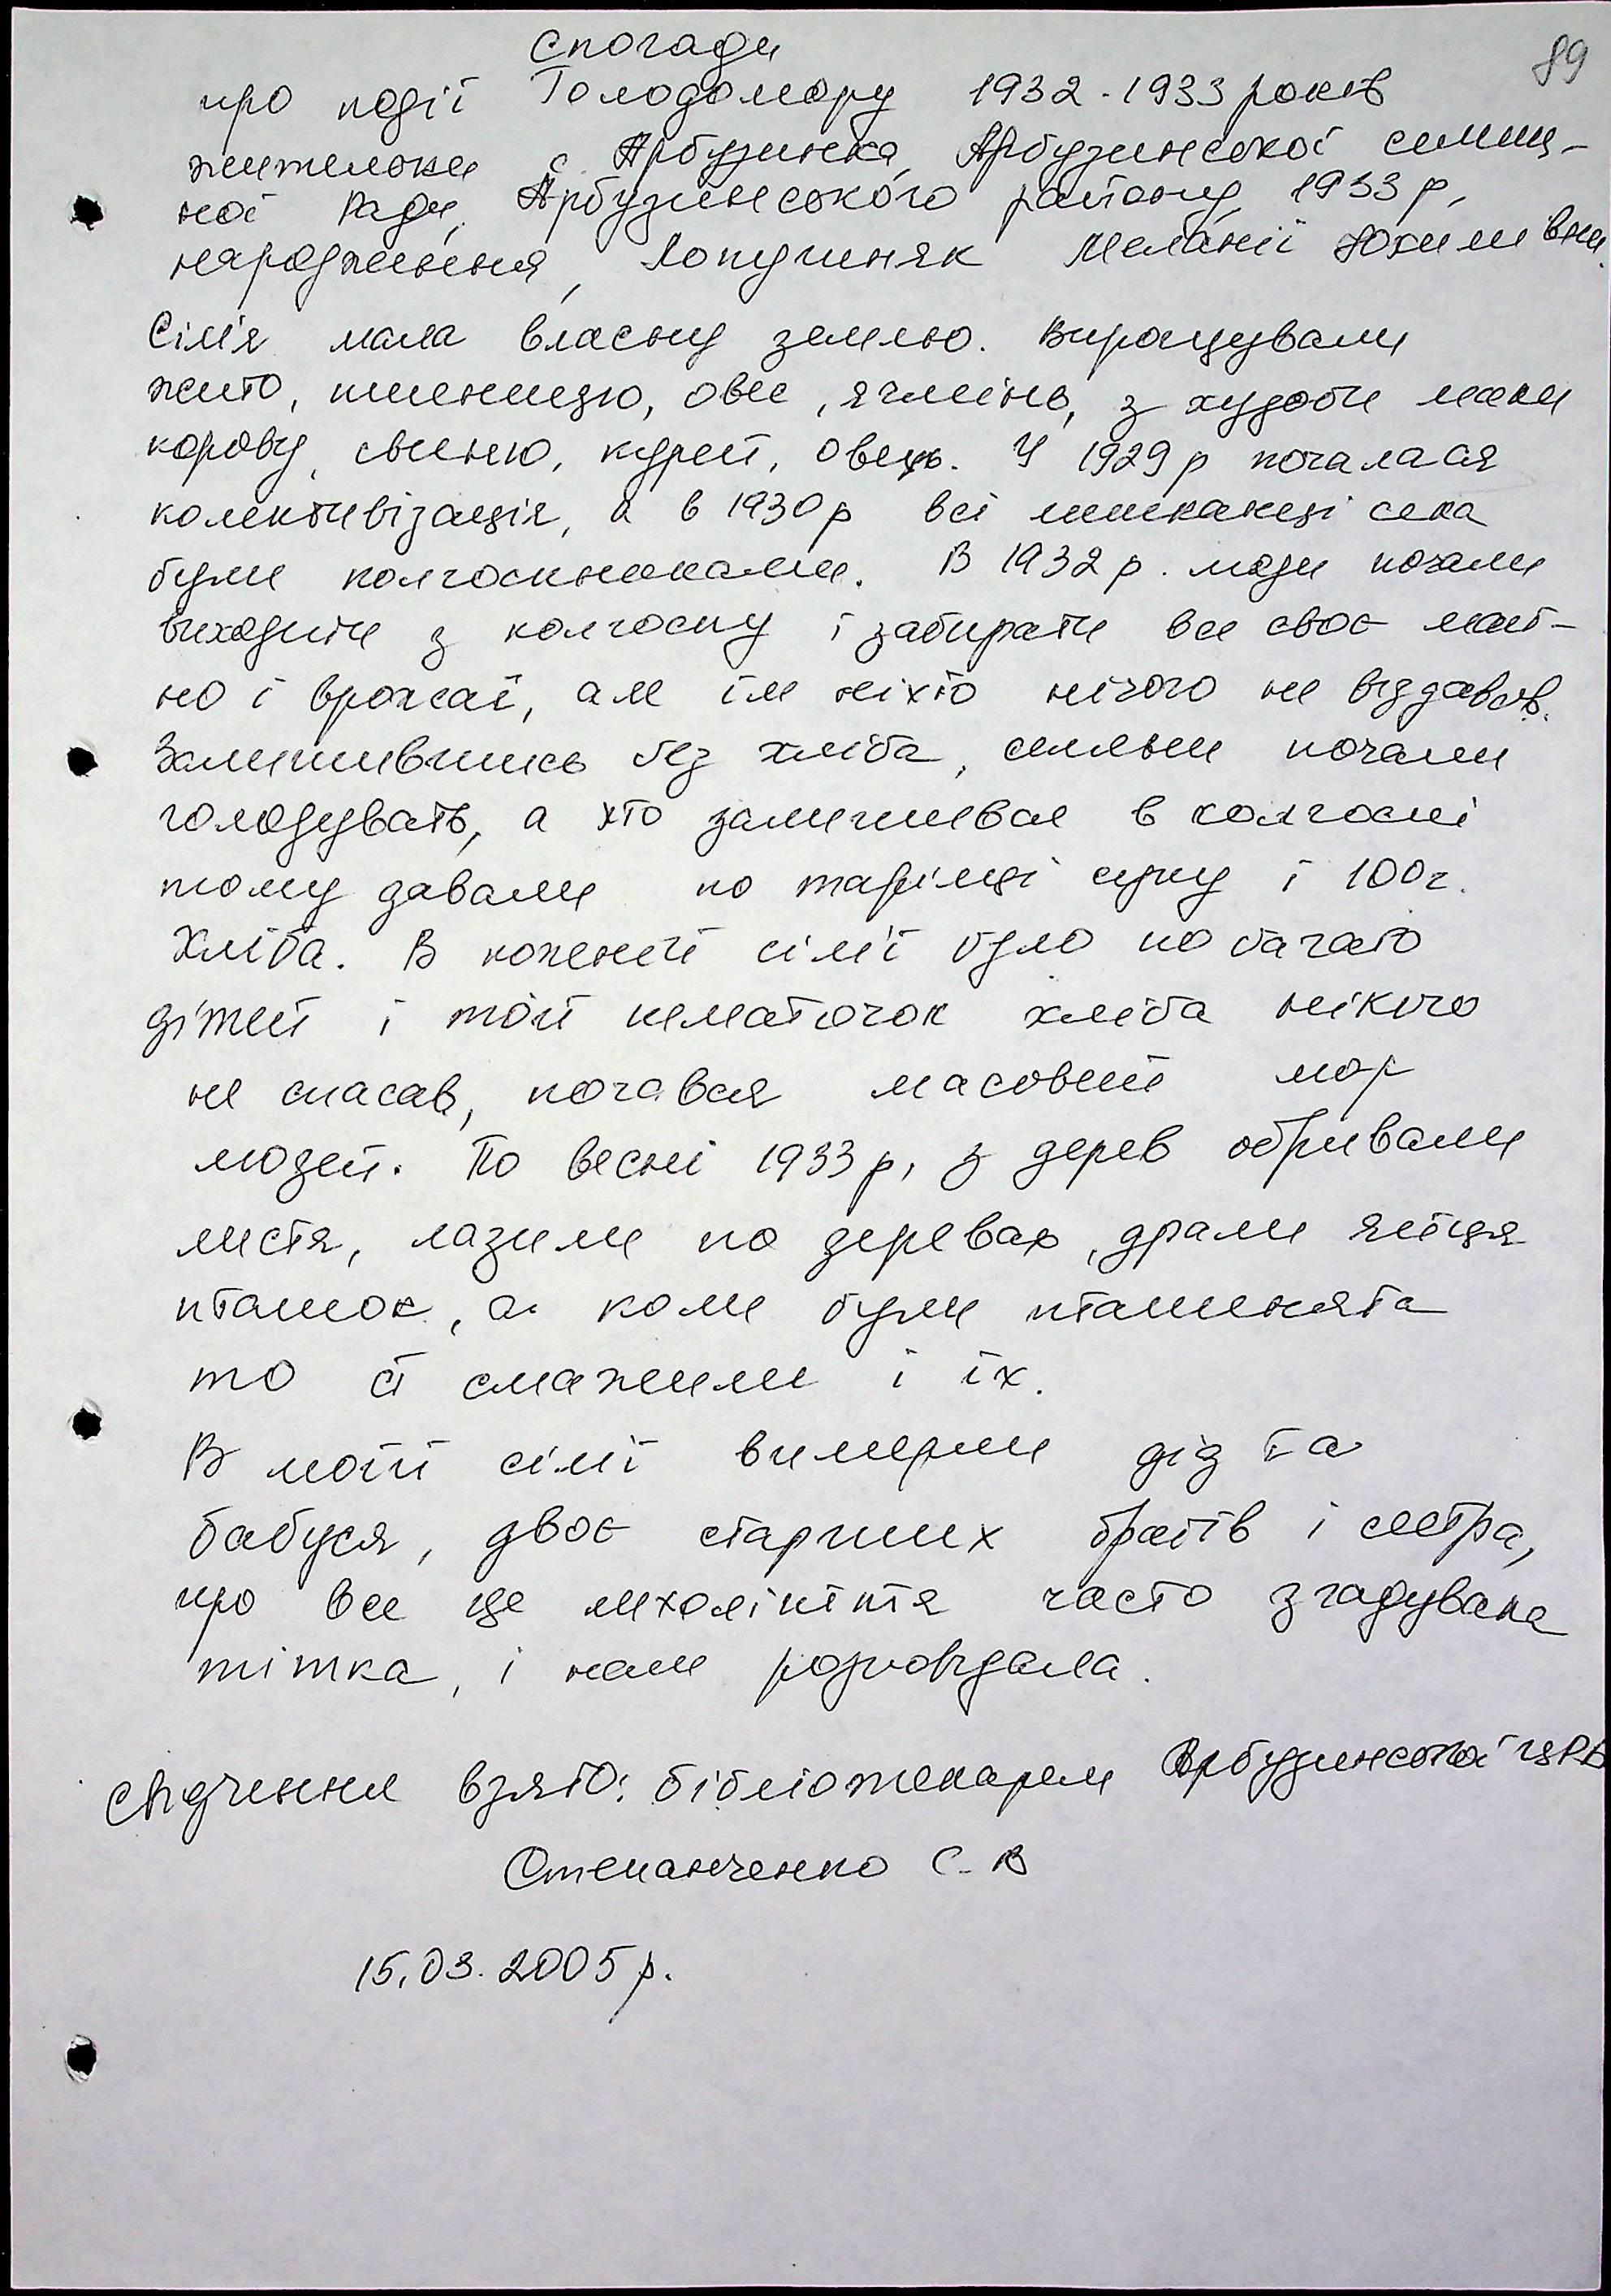 Спогади
89
про події Голодомору 1932-1933 років
жительки с Арбузинка, Арбузинської селищ-
ної Ради, Арбузинського району, 1933 р,
народження, Лопушняк Меланії Юхимівни.
Сім'я мала власну землю. Вирощували
жито, пшеницю, овес, ячмінь, з худоби мали
корову, свиню, курей, овець. У 1929 р почалася
колективізація, а в 1930 р всі мешканці села
були колгоспниками. В 1932 р. люди почали
виходити з колгоспу і забирати все своє май-
но і врожаї, але їм ніхто нічого не віддавав.
Залишившись без хліба, селяни почали
голодувать, а хто залишився в колгоспі
тому давали по тарілці супу і 100 г.
Хліба. В кожній сім'ї було по багато
дітей і той шматочок хліба нікого
не спасав, почався масовий мор
людей. По весні 1933 р, з дерев обривали
листя, лазили по деревах, драли яйця
пташок, а коли були пташенята
то й смажили і їх.
В моїй сім'ї вимерли дід та
бабуся, двоє старших братів і сестра,
про все це лихоліття часто згадувала
тітка, і нам розповідала.
Свідчення взято: бібліотекарем Арбузинської ЦРБ
Степанченко С. В
15.03.2005 р.